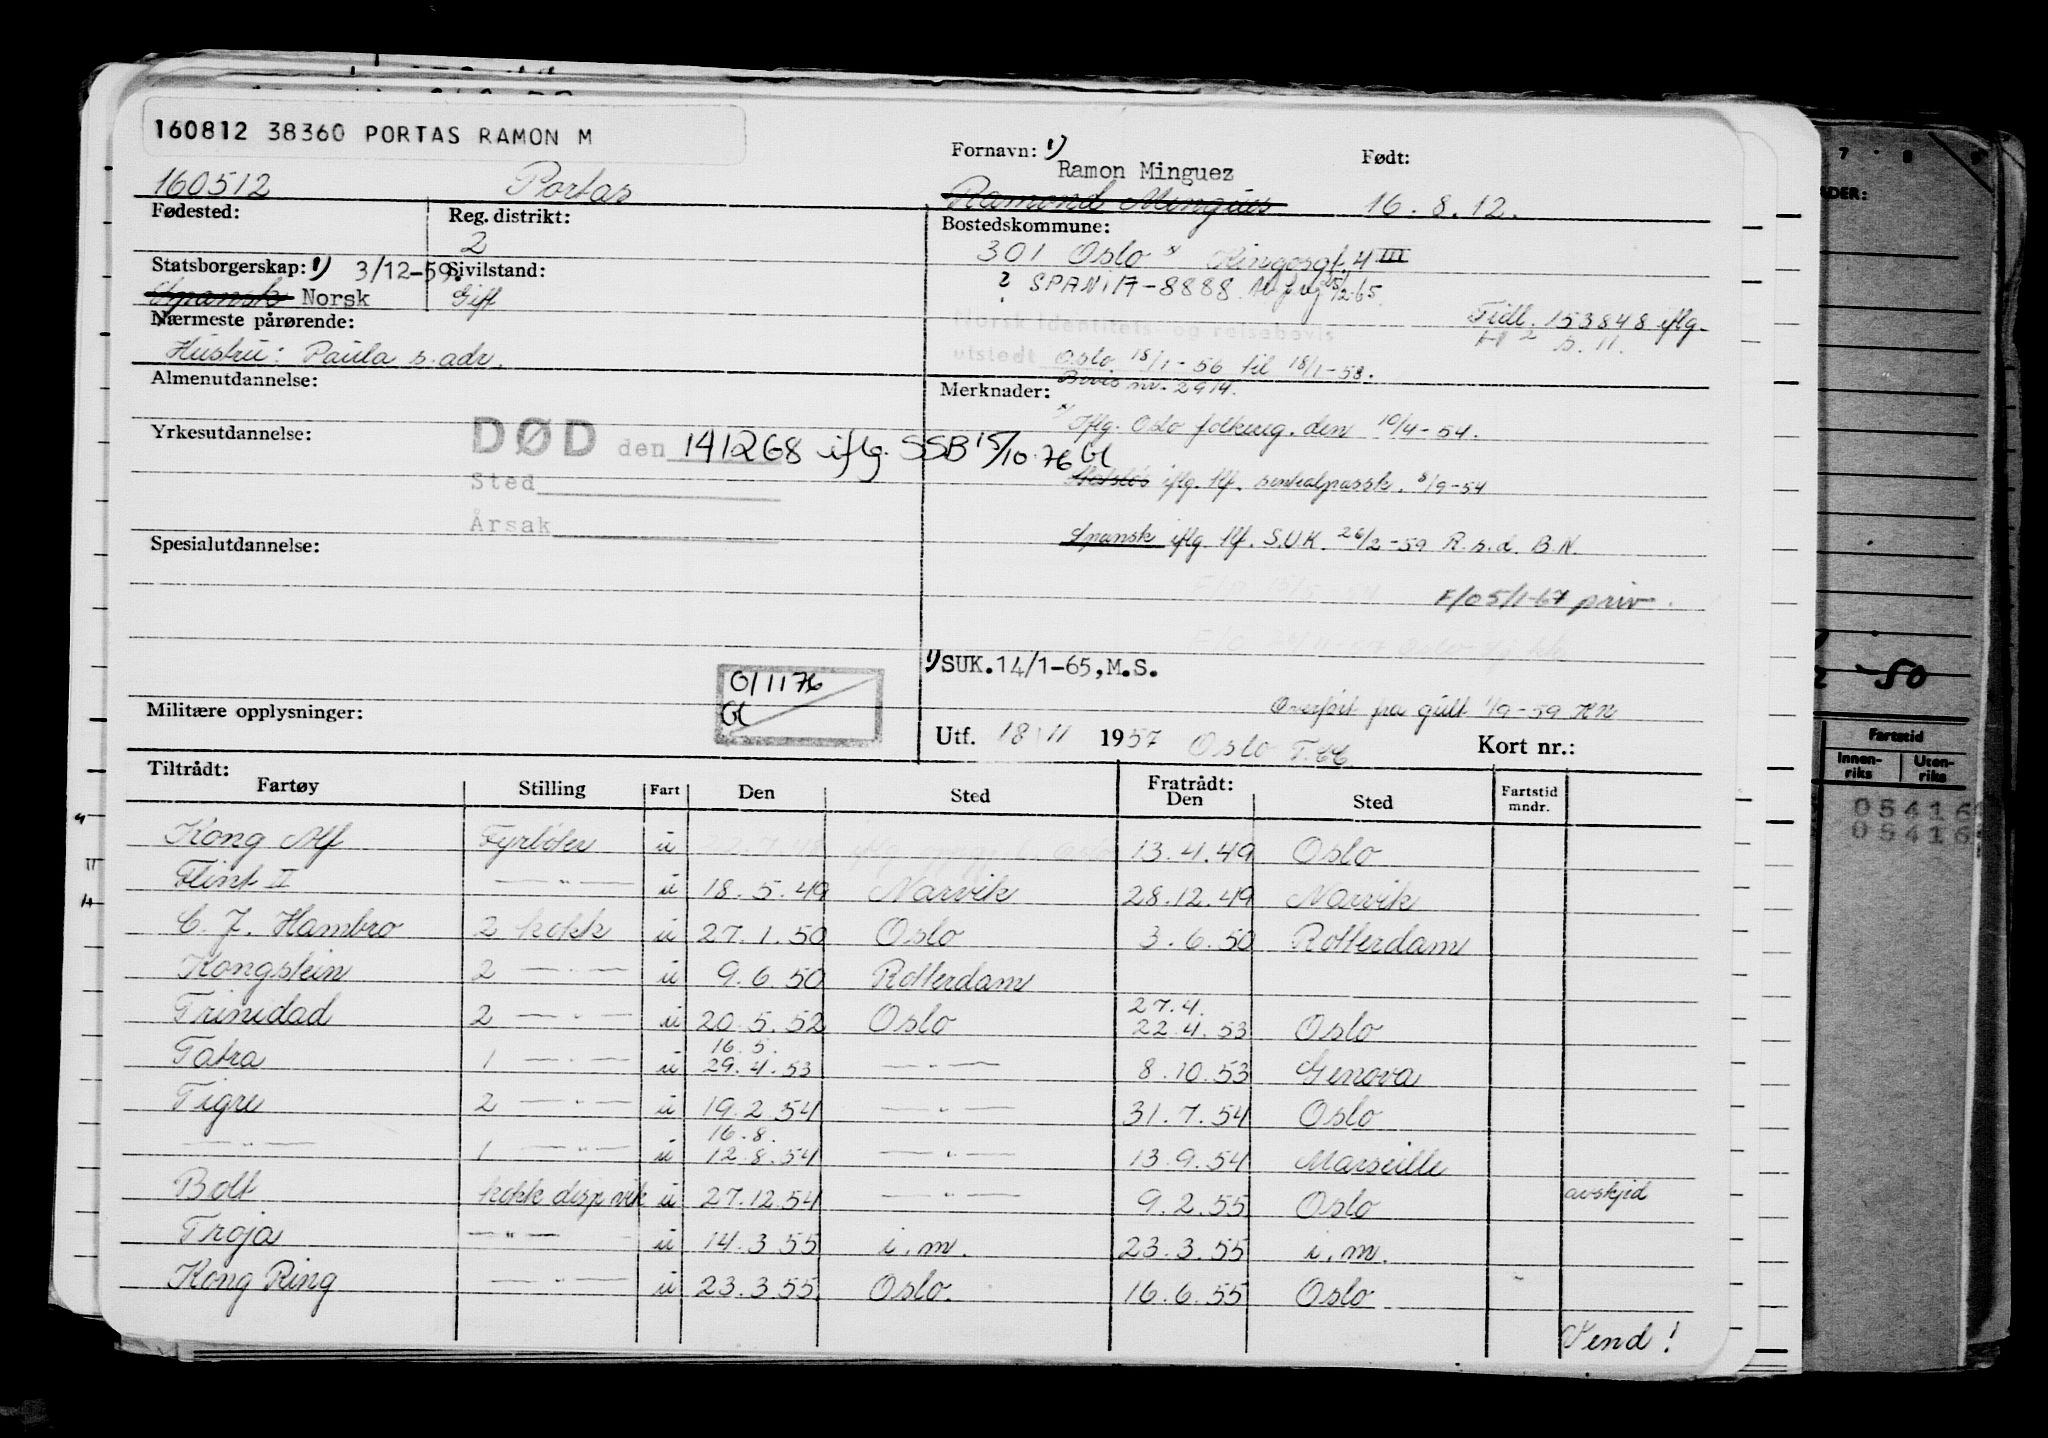 160812 38360 PORTAS RAMON M
160512 Portas
Fornavn: 1) Ramon Minguez
Ramond Mingues
Født: 16.8.12.
Fødested:
Reg. distrikt: 2
Bostedskommune: 301 Oslo x Kingosgt. 4 III
? SPANIA-8888.
Statsborgerskap: 1) 3/12-59.
Spansk Norsk
Sivilstand: Gift
Nærmeste pårørende:
Hustru: Paula s. adr.
Norsk identitets- og reisebevis
utstedt Oslo 18/1-56 til 18/1-58.
Bevis nr. 2914.
Tidl. 153848 iflg.
Almenutdannelse:
Merknader:
x) Iflg. Oslo folkereg. den 10/4-54.
Yrkesutdannelse:
DØD den 141268 iflg. SSB 15/10.76 Gl
Sted
Årsak
Statsløs iflg. tlf. sentralpassk. 8/9-54
Spansk iflg. tlf. S.U.K. 26/2-59 R.s.d. B.N.
Spesialutdannelse:
F/O 5/1-67 priv.
1) SUK.14/1-65,M.S.
0/1176
Gl
Overført fra gult 1/9-59
Militære opplysninger:
Utf. 18/11 1957 Oslo
Kort nr.:
Tiltrådt:
Fartøy Stilling Fart Den Sted Fratrådt: Den Sted Fartstid mndr.
Kong Alf Fyrbøter u 13.4.49 Oslo
Flint II —"— u 18.5.49 Narvik 28.12.49 Narvik
C. J. Hambro 2 kokk u 27.1.50 Oslo 3.6.50 Rotterdam
Kongstein 2 —"— u 9.6.50 Rotterdam
27.4.
Trinidad 2 —"— u 20.5.52 Oslo 22.4.53 Oslo
16.5.
Tatra 1 —"— u 29.4.53 —"— 8.10.53 Genova
Tigre 2 —"— u 19.2.54 —"— 31.7.54 Oslo
16.8.
—"— 1 —"— u 12.8.54 —"— 13.9.54 Marseille
Bolt kokk disp vik u 27.12.54 —"— 9.2.55 Oslo avskjed
Troja —"— u 14.3.55 i.m. 23.3.55 i.m.
Kong Ring —"— u 23.3.55. Oslo. 16.6.55 Oslo
Vend!
7 8 9
-50
Fartstid
Innen-riks Uten-riks
05416
05416